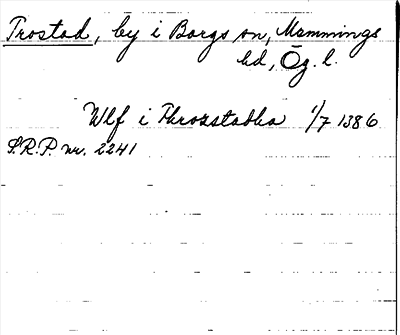 Trostad, by i Borgs sn, Memmings
hd, Ög. l.
Wlf i Throzstadha 1/7 1386
S.R.P. nr. 2241